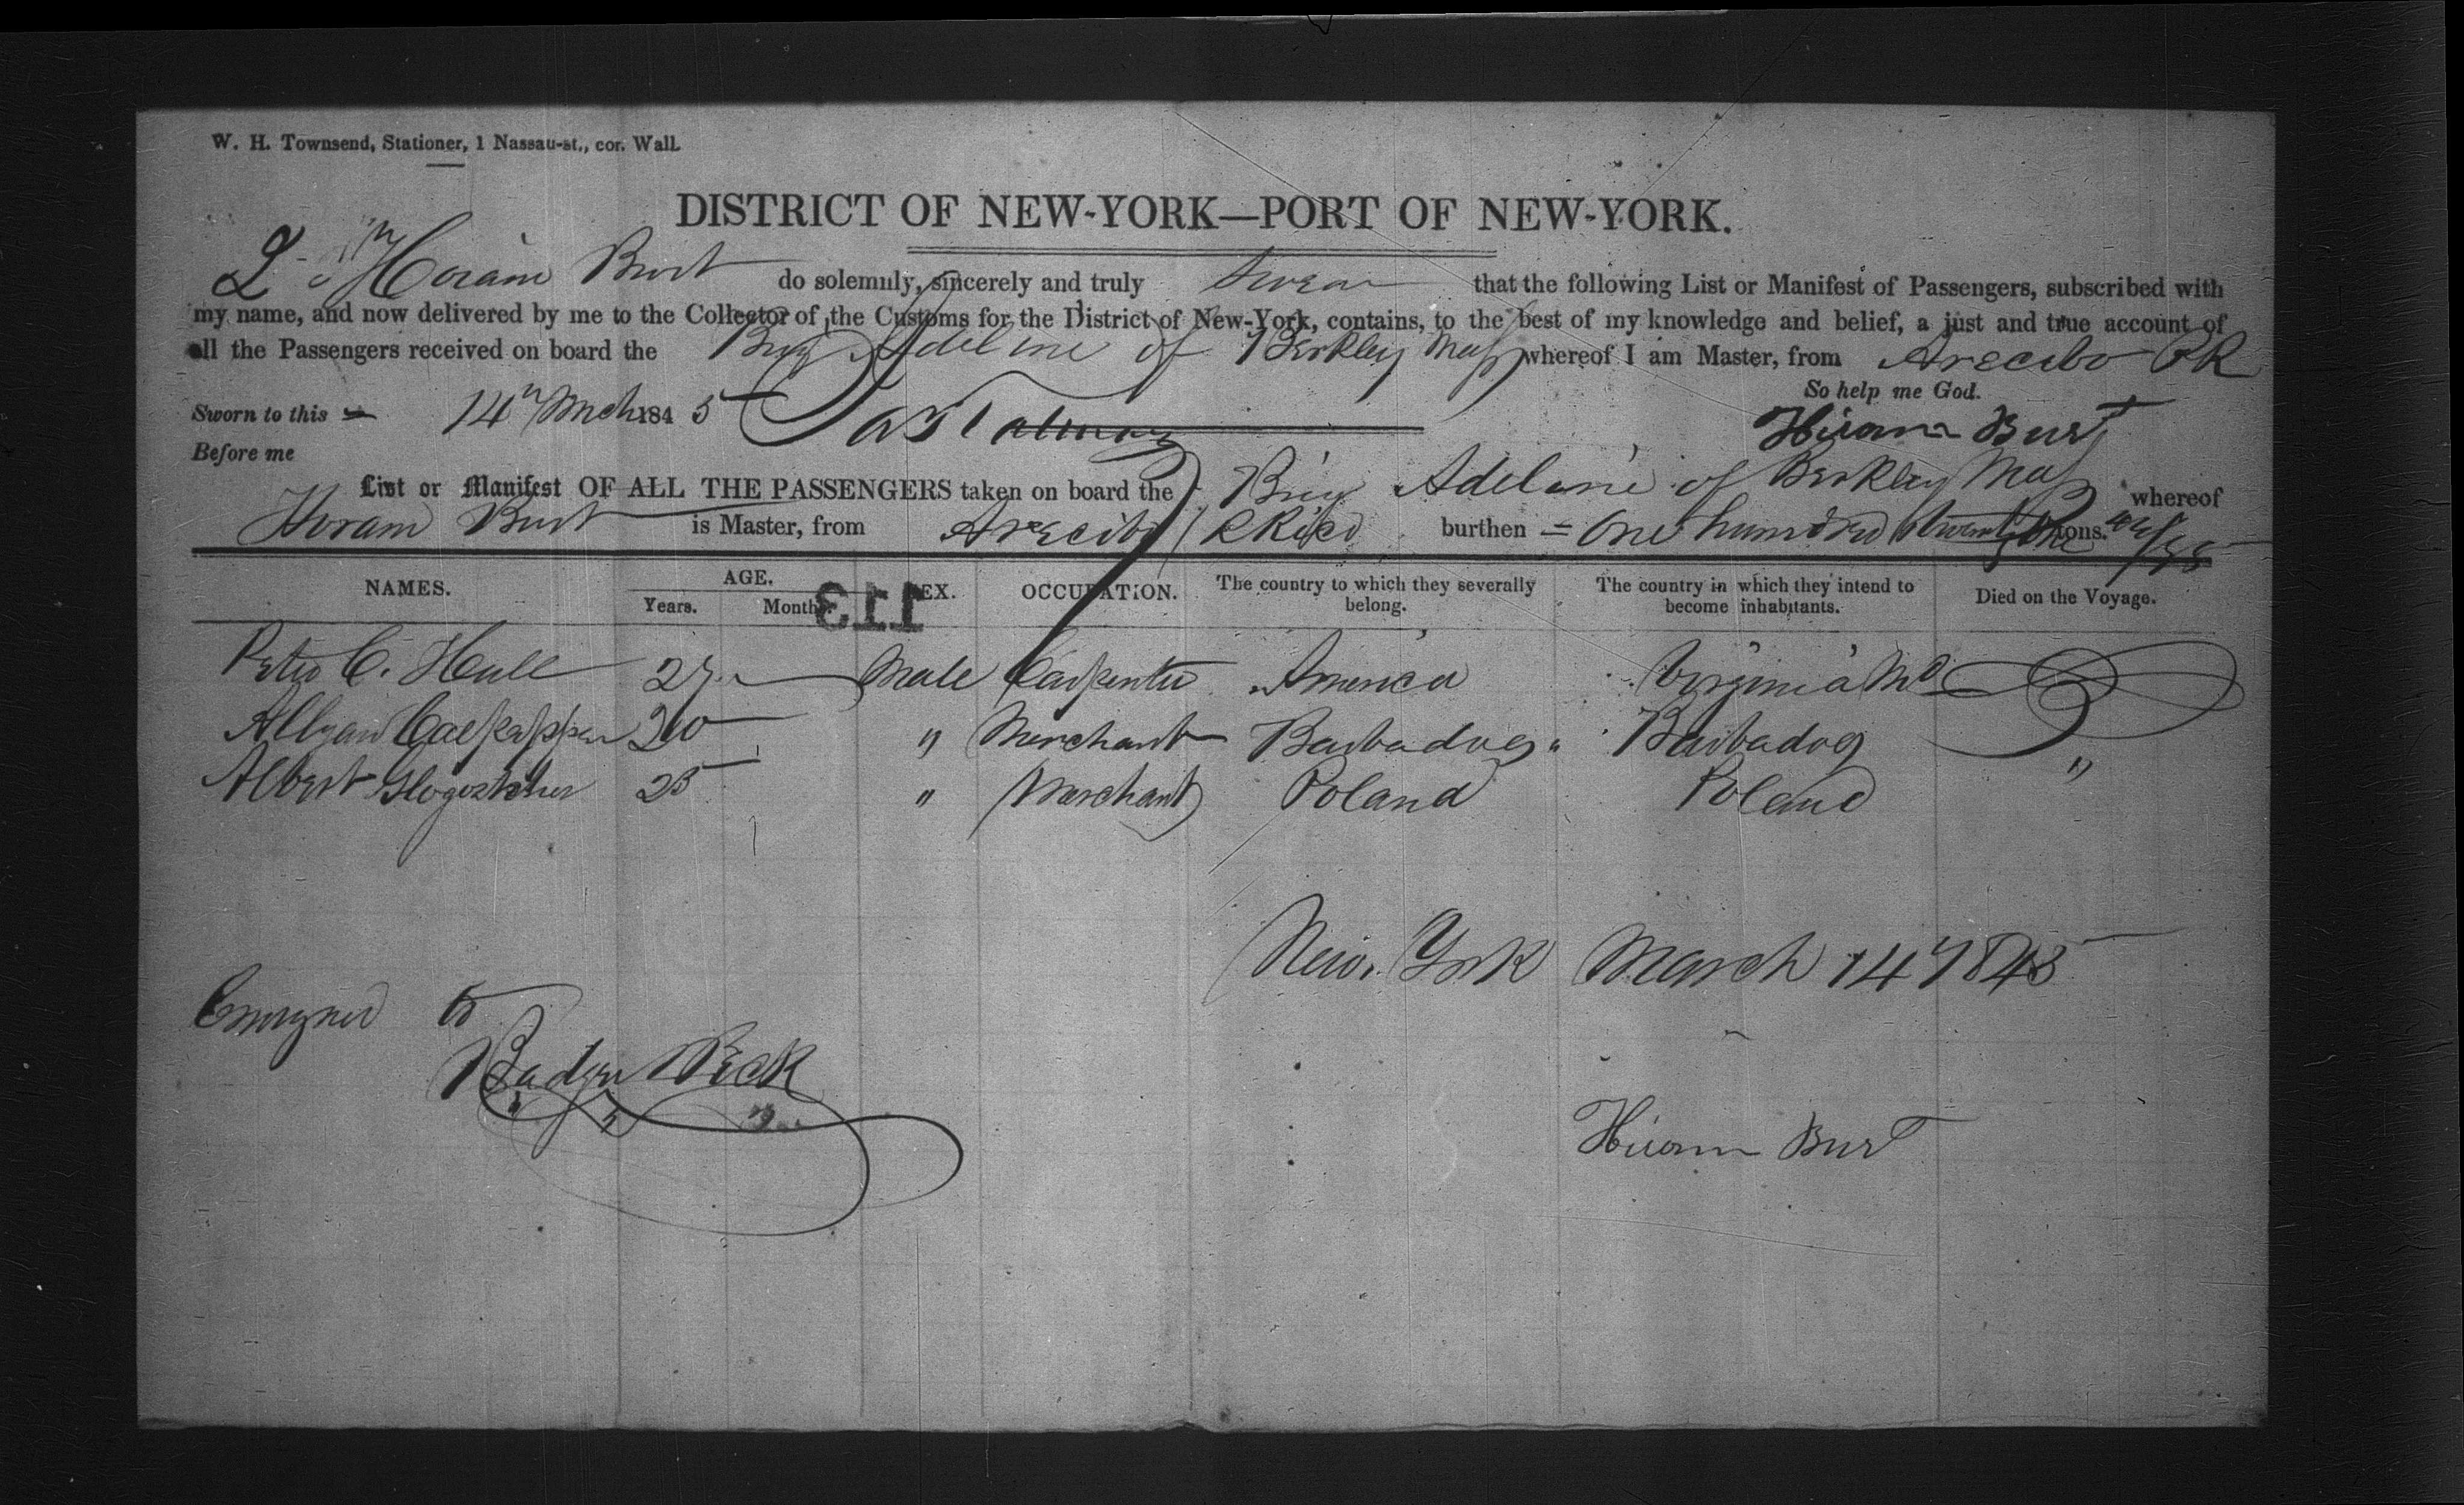 W. H. Townsend, Stationer, 1 Nassau-st., cor. Wall.
DISTRICT OF NEW-YORK—PORT OF NEW-YORK.
I Hiram Burt do solemnly, sincerely and truly swear that the following List or Manifest of Passengers, subscribed with
my name, and now delivered by me to the Collector of the Customs for the District of New-York, contains, to the best of my knowledge and belief, a just and true account of
all the Passengers received on board the Brig Adeline of Berkley Mass whereof I am Master, from Arecibo PR
So help me God.
Sworn to this 14th Mch 1845
Hiram Burt
Before me
List or Manifest OF ALL THE PASSENGERS taken on board the Brig Adeline of Berkley Mass whereof
Hiram Burt is Master, from Arecibo P Rico burthen = One hundred twenty One tons.
NAMES. AGE. SEX. OCCUPATION. The country to which they severally belong. The country in which they intend to become inhabitants. Died on the Voyage.
Years. Months.
113
Peter C. Hull 27 Male Carpenter America Virginia
20 " Merchant Barbados Barbados
Albert 25 " Merchant Poland Poland "
New York March 14 1845
Consigned to
Badger Peck
Hiram Burt